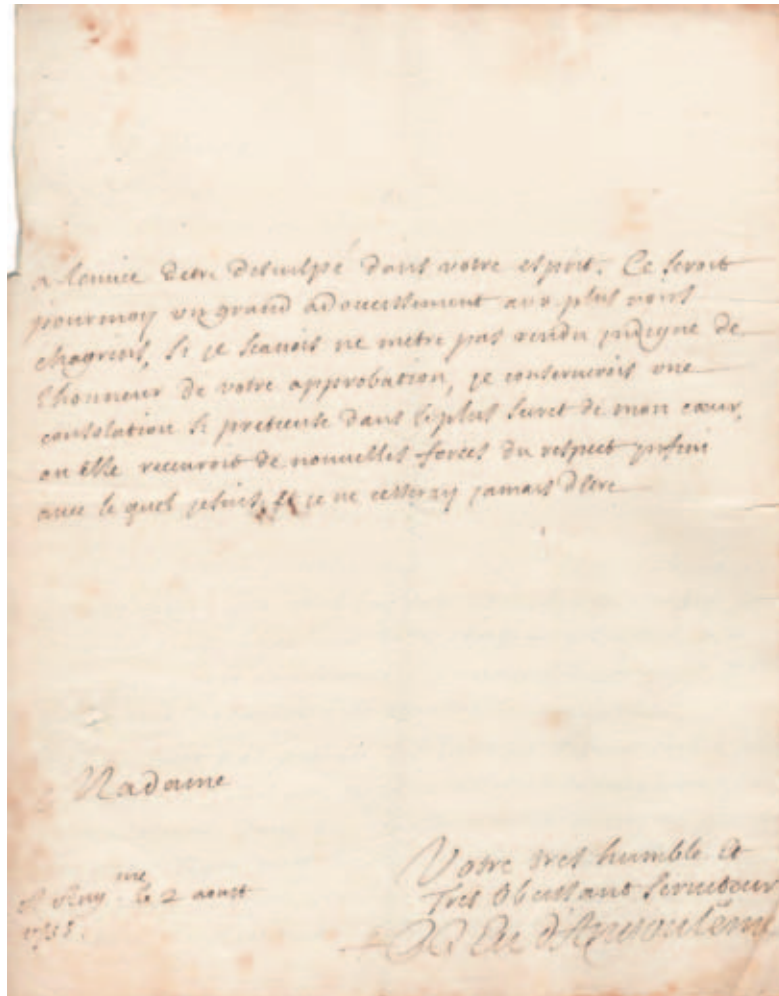 a lenvie detre desculpé dans votre esprit. Ce seroit
pour moy un grand adoucissement aux plus
chagrins, si je scavois ne metre pas rendu indigne de
lhonneur de votre approbation, je conserverois une
consolation si pretieuse dans le plus secret de mon cœur,
ou elle recevroit de nouvelles forces du respect infini
avec le quel je suis, et je ne cesseray jamais dêtre
Madame
le 2 aoust
Votre tres humble et
Tres Obeissant serviteur
Ev d'Angoulême